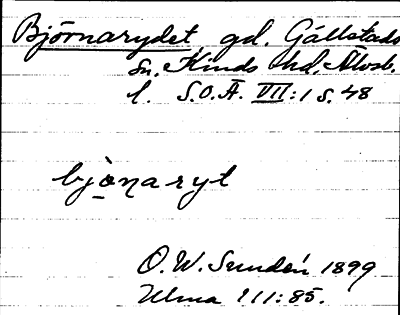 Björnarydet gd. Gällstads
sn. Kinds hd. Älvsb.
l. S.O.Ä. VII:1 s. 48
bjo̲n̲aryt
O. W. Sundén 1899
Ulma 111:85.